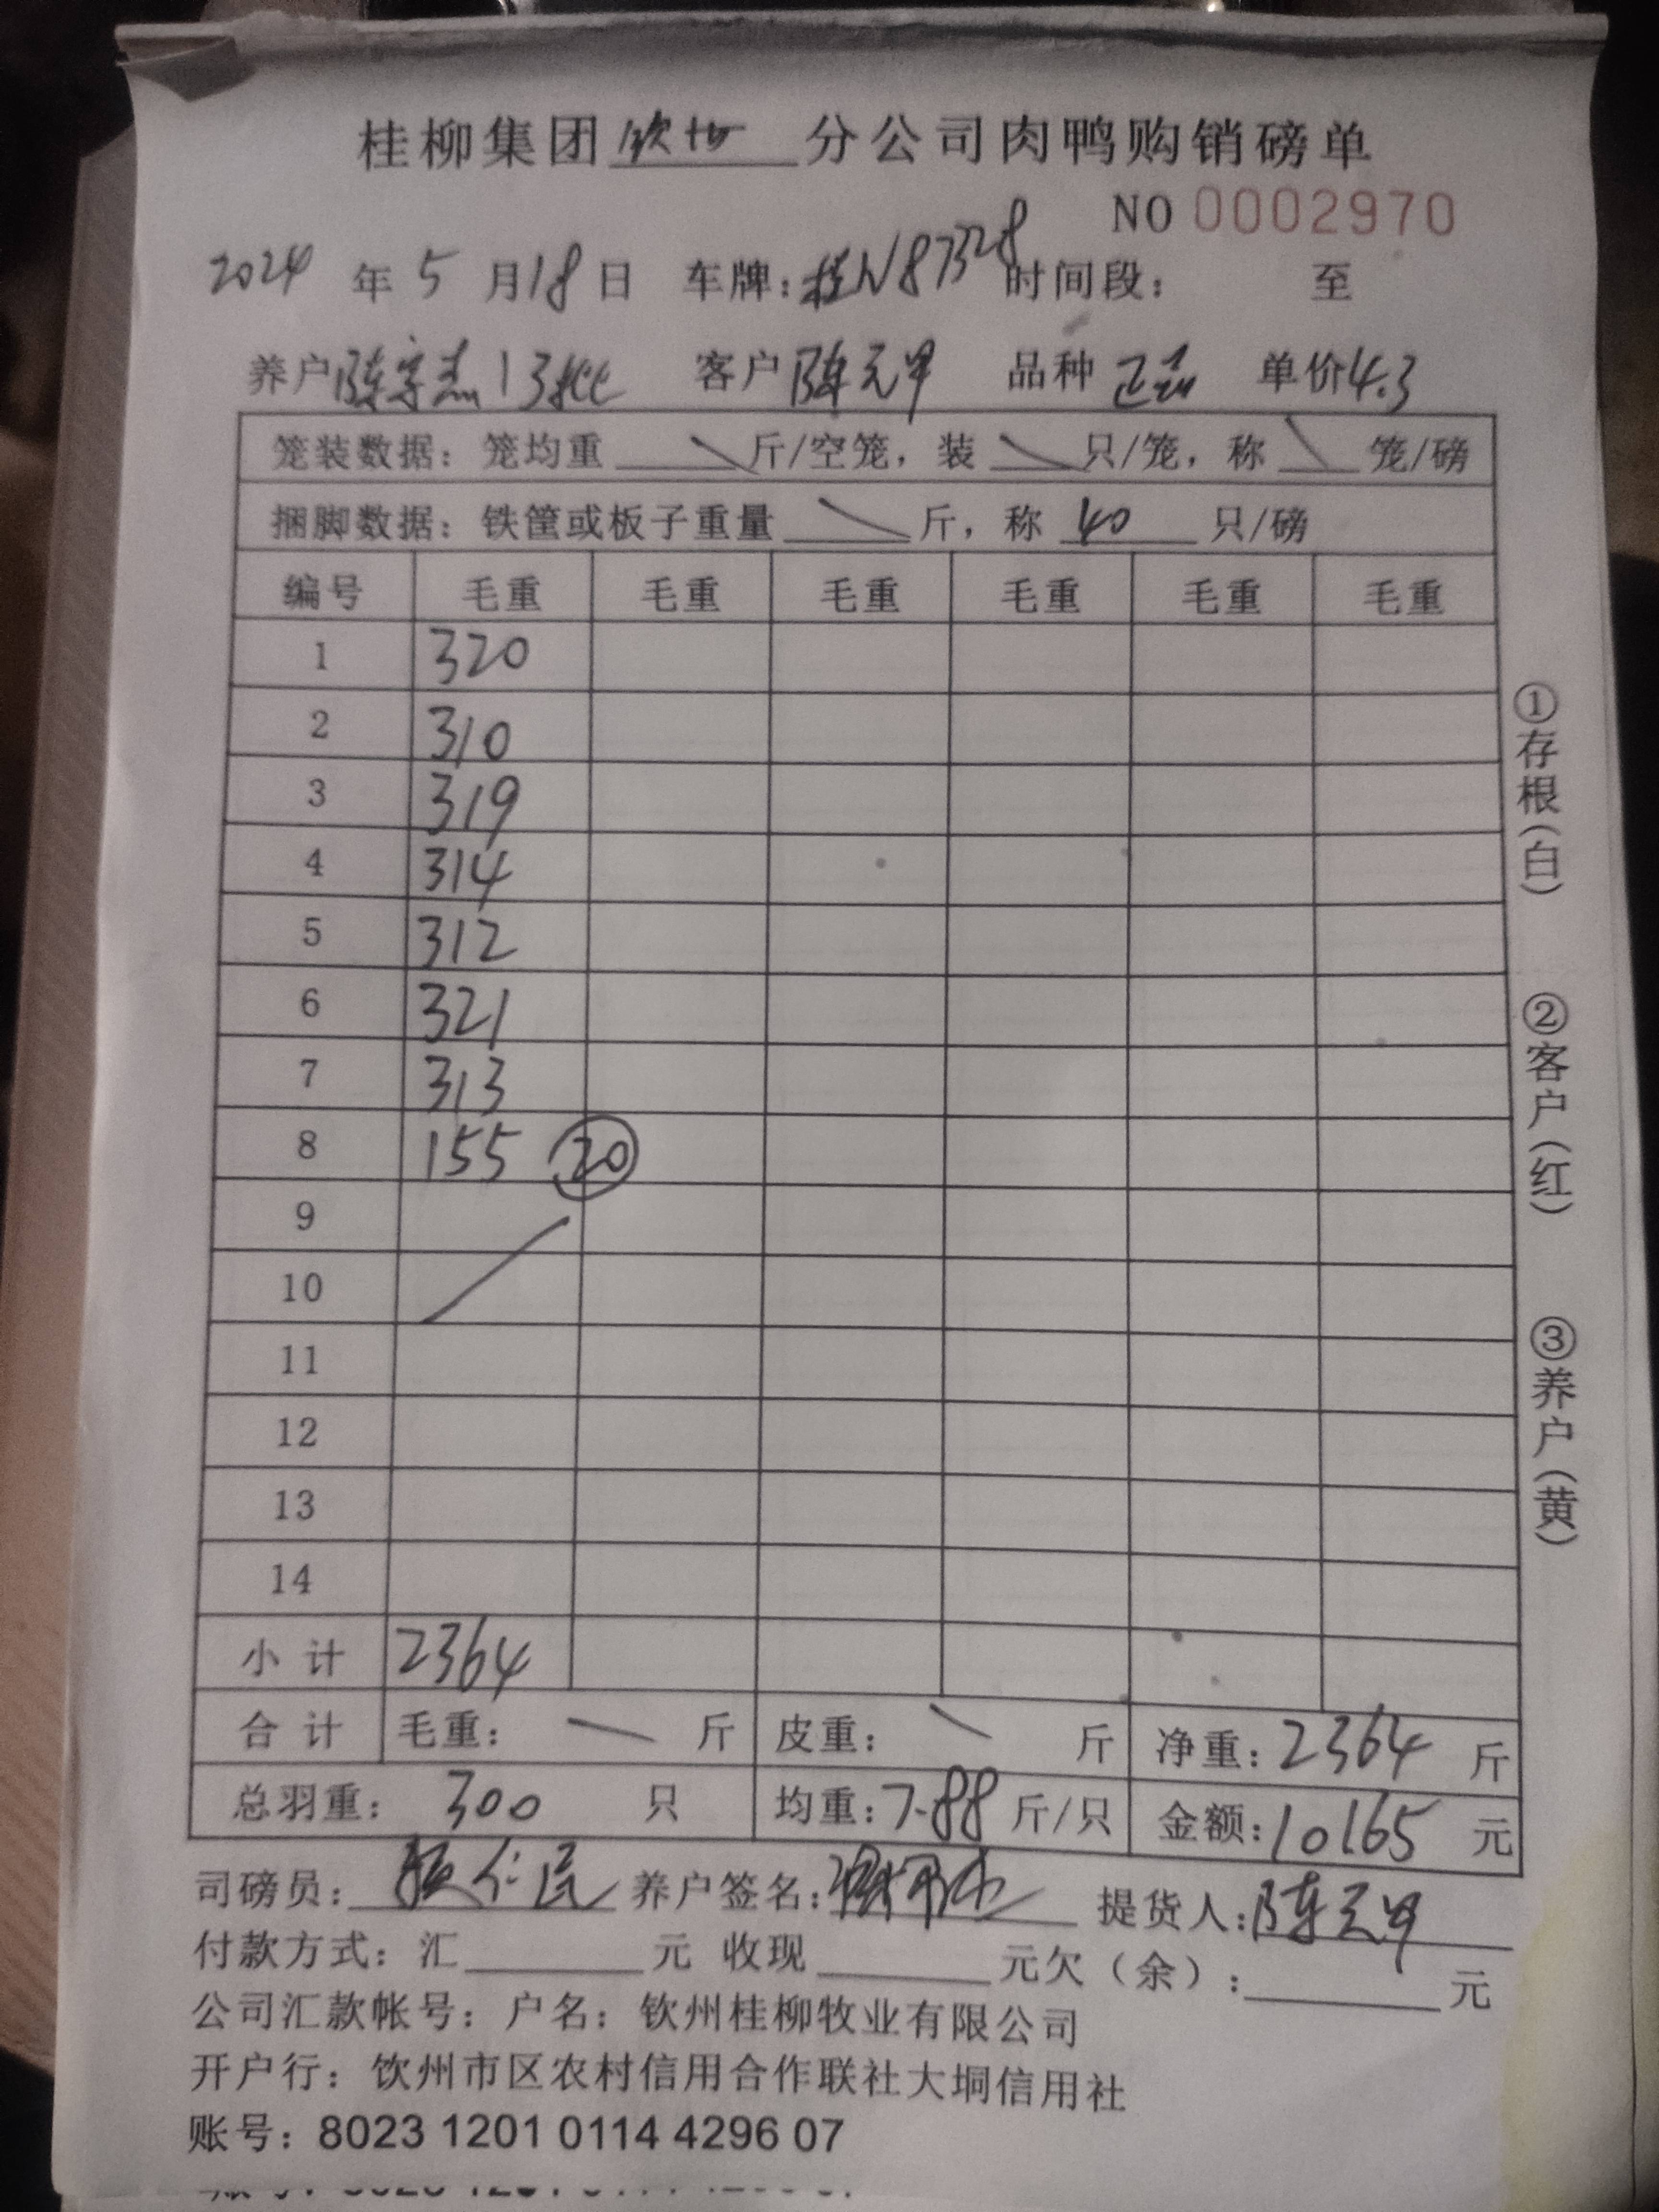 桂柳集团钦州分公司肉鸭购销磅单
NO 0002970
2024 年 5 月 18 日 车牌：桂N87328 时间段： 至
养户 陈宗杰 13批 客户 陈元甲 品种 正品 单价 4.3
笼装数据：笼均重 \ 斤/空笼，装 \ 只/笼，称 \ 笼/磅
捆脚数据：铁筐或板子重量 \ 斤，称 40 只/磅
编号 毛重 毛重 毛重 毛重 毛重 毛重
1 320
2 310
3 319
4 314
5 312
6 321
7 313
8 155 20
9
10
11
12
13
14
小计 2364
合计 毛重： \ 斤 皮重： \ 斤 净重：2364 斤
总羽重：300 只 均重：7.88 斤/只 金额：10165 元
司磅员： 养户签名： 提货人：陈元甲
付款方式：汇 元 收现 元 欠（余）： 元
公司汇款帐号：户名：钦州桂柳牧业有限公司
开户行：钦州市区农村信用合作联社大垌信用社
账号：8023 1201 0114 4296 07
①存根（白）
②客户（红）
③养户（黄）